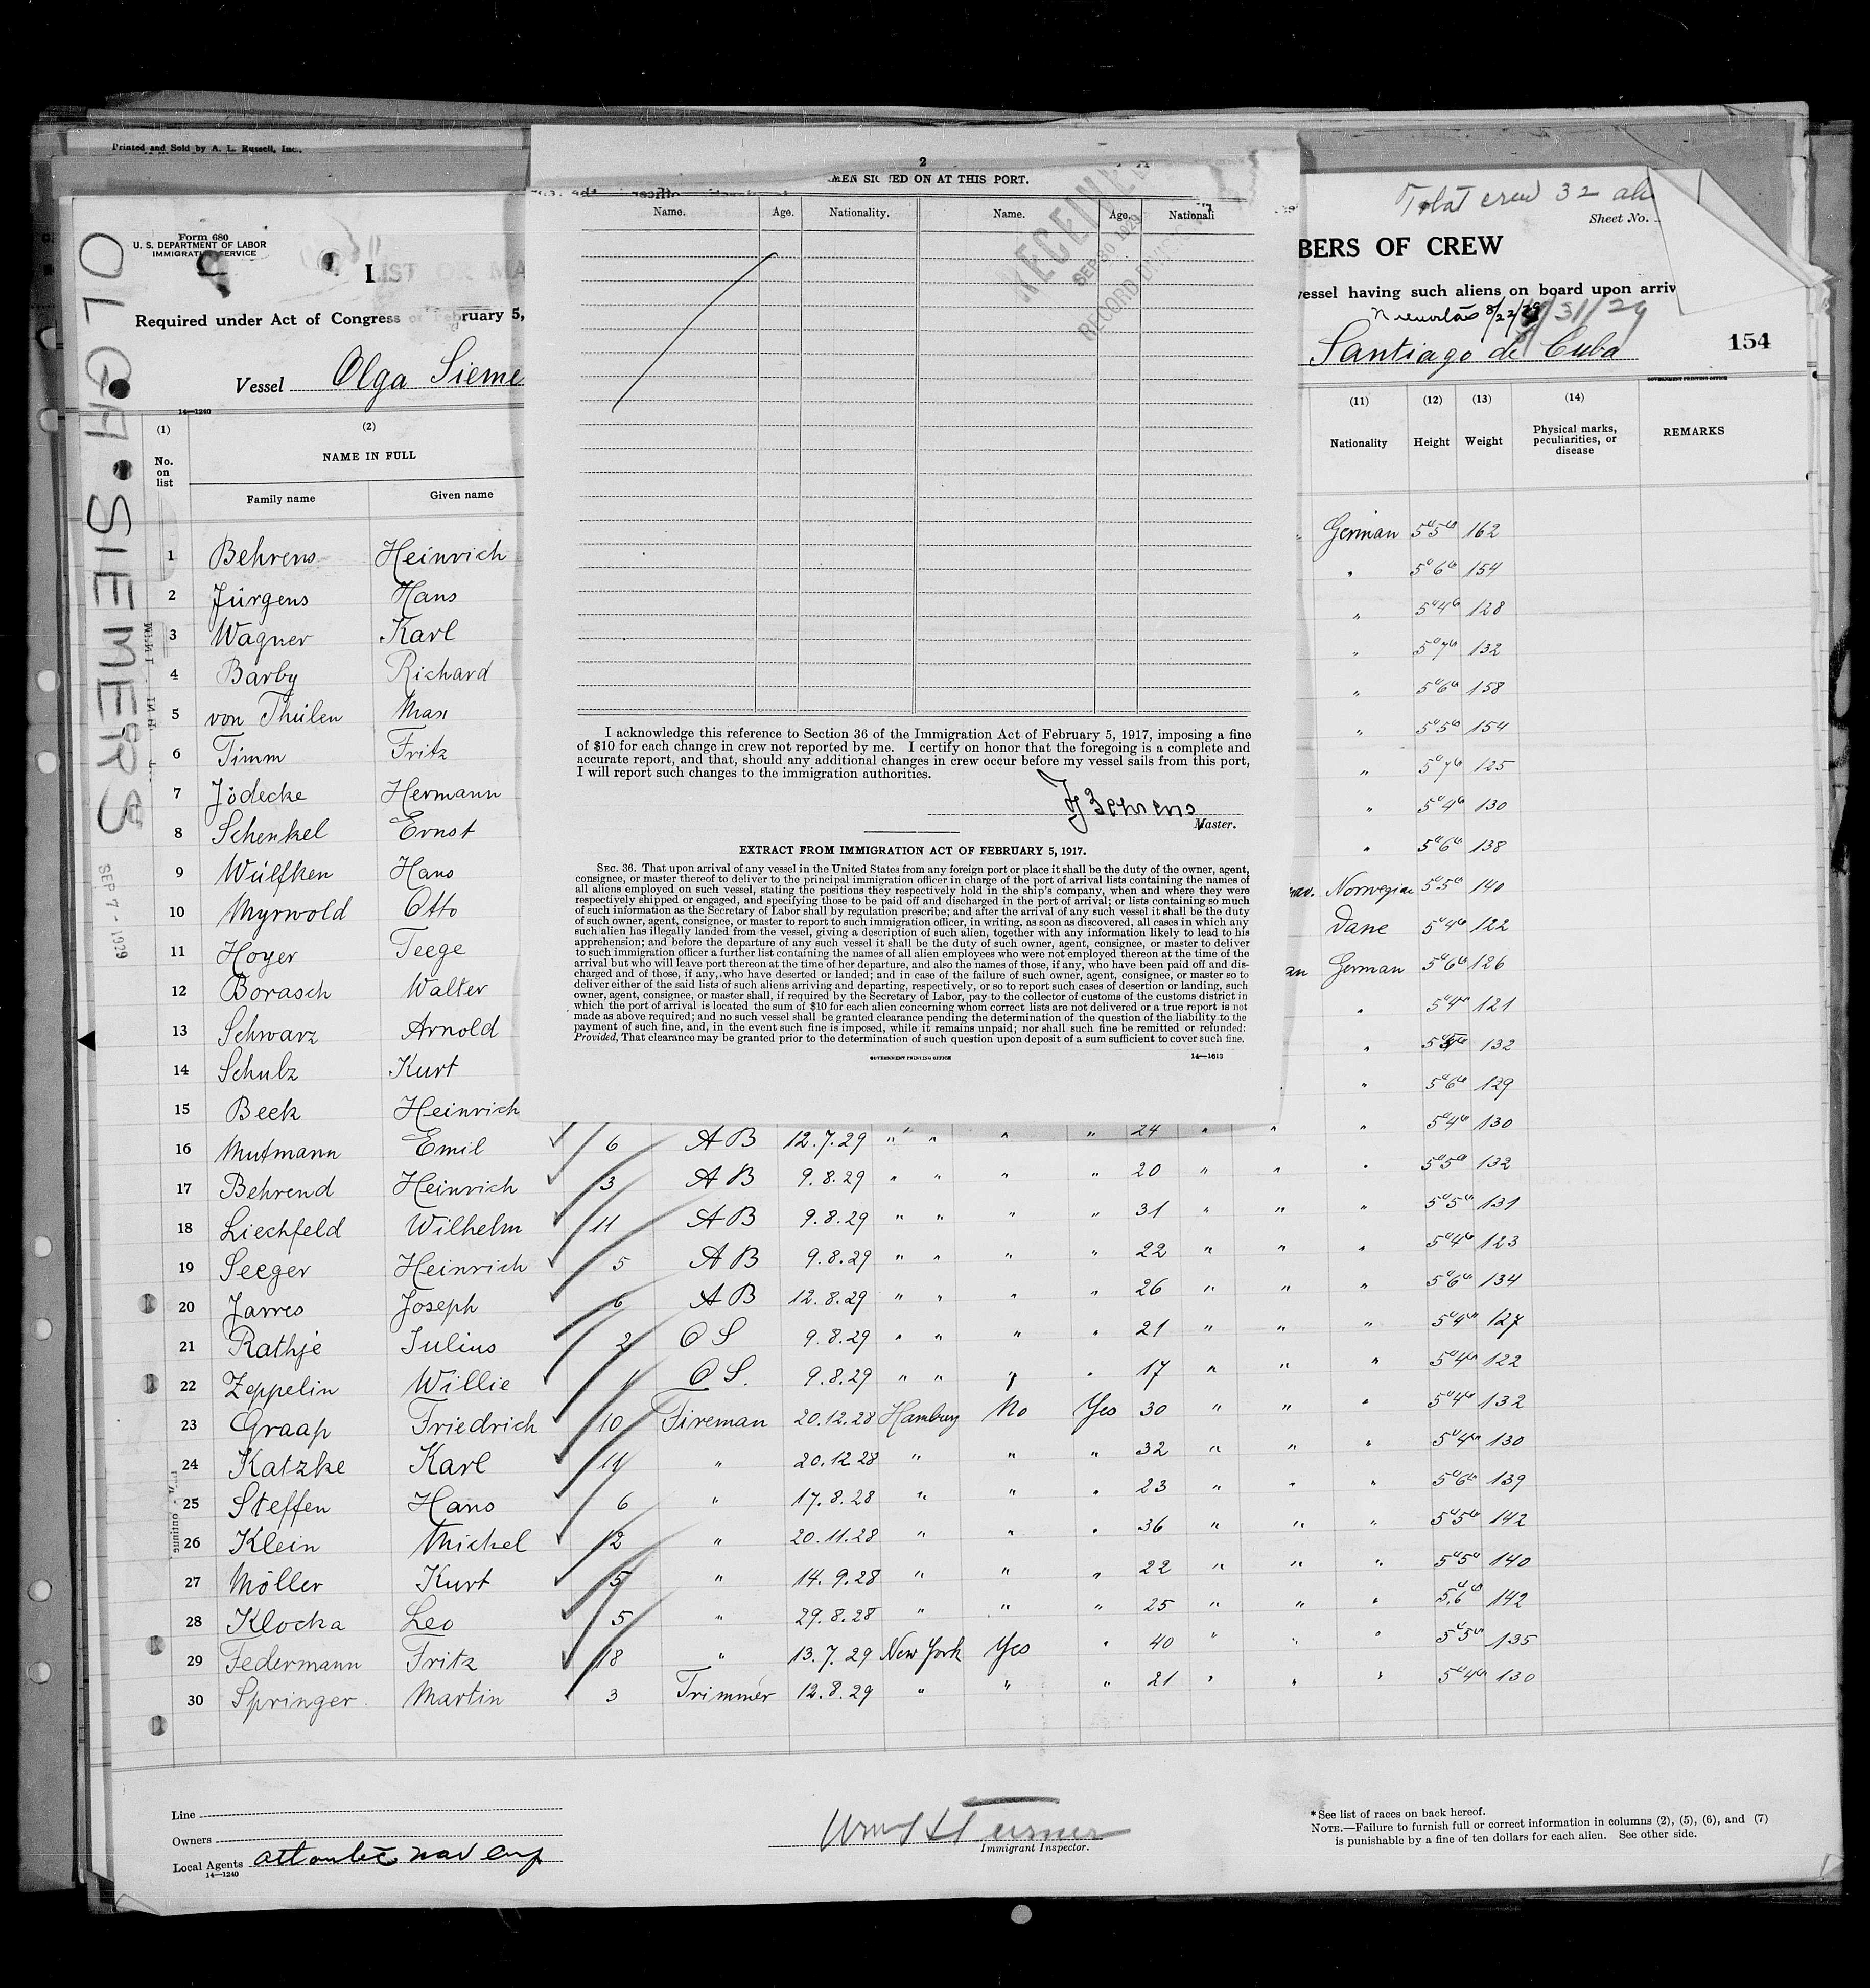 Printed and Sold by A. L. Russell, Inc.,
Form 680
U. S. DEPARTMENT OF LABOR
IMMIGRATION SERVICE
LIST OR MA
Required under Act of Congress of February 5,
Vessel Olga Sieme
14—1240
OLGA SIEMERS
SEP 7 - 1929
Total crew 32
Sheet No.
BERS OF CREW
vessel having such aliens on board upon arriv
8/22/29 8/31/29
Santiago de Cuba
154
GOVERNMENT PRINTING OFFICE
2
MEN SIGNED ON AT THIS PORT.
Name. Age. Nationality. Name. Age. Nationali
RECEIVED
SEP 30 1929
RECORD DIVISION
I acknowledge this reference to Section 36 of the Immigration Act of February 5, 1917, imposing a fine
of $10 for each change in crew not reported by me. I certify on honor that the foregoing is a complete and
accurate report, and that, should any additional changes in crew occur before my vessel sails from this port,
I will report such changes to the immigration authorities.
Behrens
Master.
EXTRACT FROM IMMIGRATION ACT OF FEBRUARY 5, 1917.
SEC. 36. That upon arrival of any vessel in the United States from any foreign port or place it shall be the duty of the owner, agent,
consignee, or master thereof to deliver to the principal immigration officer in charge of the port of arrival lists containing the names of
all aliens employed on such vessel, stating the positions they respectively hold in the ship's company, when and where they were
respectively shipped or engaged, and specifying those to be paid off and discharged in the port of arrival; or lists containing so much
of such information as the Secretary of Labor shall by regulation prescribe; and after the arrival of any such vessel it shall be the duty
of such owner, agent, consignee, or master to report to such immigration officer, in writing, as soon as discovered, all cases in which any
such alien has illegally landed from the vessel, giving a description of such alien, together with any information likely to lead to his
apprehension; and before the departure of any such vessel it shall be the duty of such owner, agent, consignee, or master to deliver
to such immigration officer a further list containing the names of all alien employees who were not employed thereon at the time of the
arrival but who will leave port thereon at the time of her departure, and also the names of those, if any, who have been paid off and dis-
charged and of those, if any, who have deserted or landed; and in case of the failure of such owner, agent, consignee, or master so to
deliver either of the said lists of such aliens arriving and departing, respectively, or so to report such cases of desertion or landing, such
owner, agent, consignee, or master shall, if required by the Secretary of Labor, pay to the collector of customs of the customs district in
which the port of arrival is located the sum of $10 for each alien concerning whom correct lists are not delivered or a true report is not
made as above required; and no such vessel shall be granted clearance pending the determination of the question of the liability to the
payment of such fine, and, in the event such fine is imposed, while it remains unpaid; nor shall such fine be remitted or refunded:
Provided, That clearance may be granted prior to the determination of such question upon deposit of a sum sufficient to cover such fine.
GOVERNMENT PRINTING OFFICE 14—1613
(1) (2) (11) (12) (13) (14)
No. on list NAME IN FULL Nationality Height Weight Physical marks, peculiarities, or disease REMARKS
Family name Given name
1 Behrens Heinrich German 5'5" 162
2 Jürgens Hans " 5'6" 154
3 Wagner Karl " 5'4" 128
4 Barby Richard " 5'7" 132
5 von Thülen Max " 5'6" 158
6 Timm Fritz " 5'5" 154
7 Jödecke Hermann " 5'7" 125
8 Schenkel Ernst " 5'4" 130
9 Wülfken Hans " 5'6" 138
10 Myrwold Otto Norwegian 5'5" 140
11 Hoyer Teege Dane 5'4" 122
12 Borasch Walter German 5'6" 126
13 Schwarz Arnold " 5'4" 121
14 Schulz Kurt " 132
15 Beek Heinrich " 5'6" 129
16 Mutmann Emil 6 AB 12.7.29 " " " " 24 " " " 5'4" 130
17 Behrend Heinrich 3 AB 9.8.29 " " " " 20 " " " 5'5" 132
18 Liechfeld Wilhelm 11 AB 9.8.29 " " " " 31 " " " 5'5" 131
19 Seeger Heinrich 5 AB 9.8.29 " " " " 22 " " " 5'4" 123
20 Jarres Joseph 6 AB 12.8.29 " " " " 26 " " " 5'6" 134
21 Rathje Julius 2 OS 9.8.29 " " " " 21 " " " 5'4" 127
22 Zeppelin Willie 1 OS. 9.8.29 " " " " 17 " " " 5'4" 122
23 Graap Friedrich 10 Fireman 20.12.28 Hamburg No Yes 30 " " " 5'4" 132
24 Katzke Karl 11 " 20.12.28 " " " 32 " " " 5'4" 130
25 Steffen Hans 6 " 17.8.28 " " " 23 " " " 5'6" 139
26 Klein Michel 12 " 20.11.28 " " " 36 " " " 5'5" 142
27 Möller Kurt 5 " 14.9.28 " " " 22 " " " 5'5" 140
28 Klocka Leo 5 " 29.8.28 " " " 25 " " " 5'6" 142
29 Federmann Fritz 18 " 13.7.29 New York Yes " 40 " " " 5'5" 135
30 Springer Martin 3 Trimmer 12.8.29 " " " 21 " " " 5'4" 130
Line
Owners
Local Agents Atlantic Nav Corp
14—1240
Wm H Turner
Immigrant Inspector.
*See list of races on back hereof.
NOTE.—Failure to furnish full or correct information in columns (2), (5), (6), and (7)
is punishable by a fine of ten dollars for each alien. See other side.